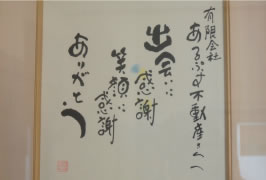 有限会社
あるぷす不動産さんへ
出会いに感謝
笑顔に感謝
ありがとう